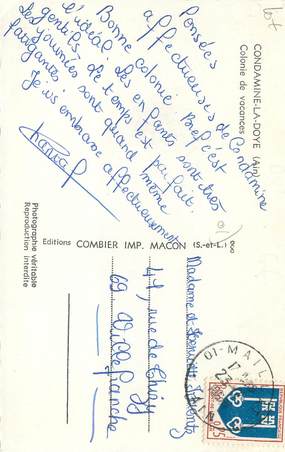 CONDAMINE-LA-DOYE (Ain)
Colonie de vacances
Pensées
affectueuses de Condamine
Bonne colonie. Bref c'est
l'idéal. Les enfants sont très
gentils, le temps est parfait.
Les journées sont quand même
fatigantes.
Je vous embrasse affectueusement
Editions COMBIER IMP. MACON (S.-et-L.)
Photographie véritable
Reproduction interdite
Madame et Monsieur
44, rue de Thizy
69 Villefranche
01-MAIL
0,25
lot